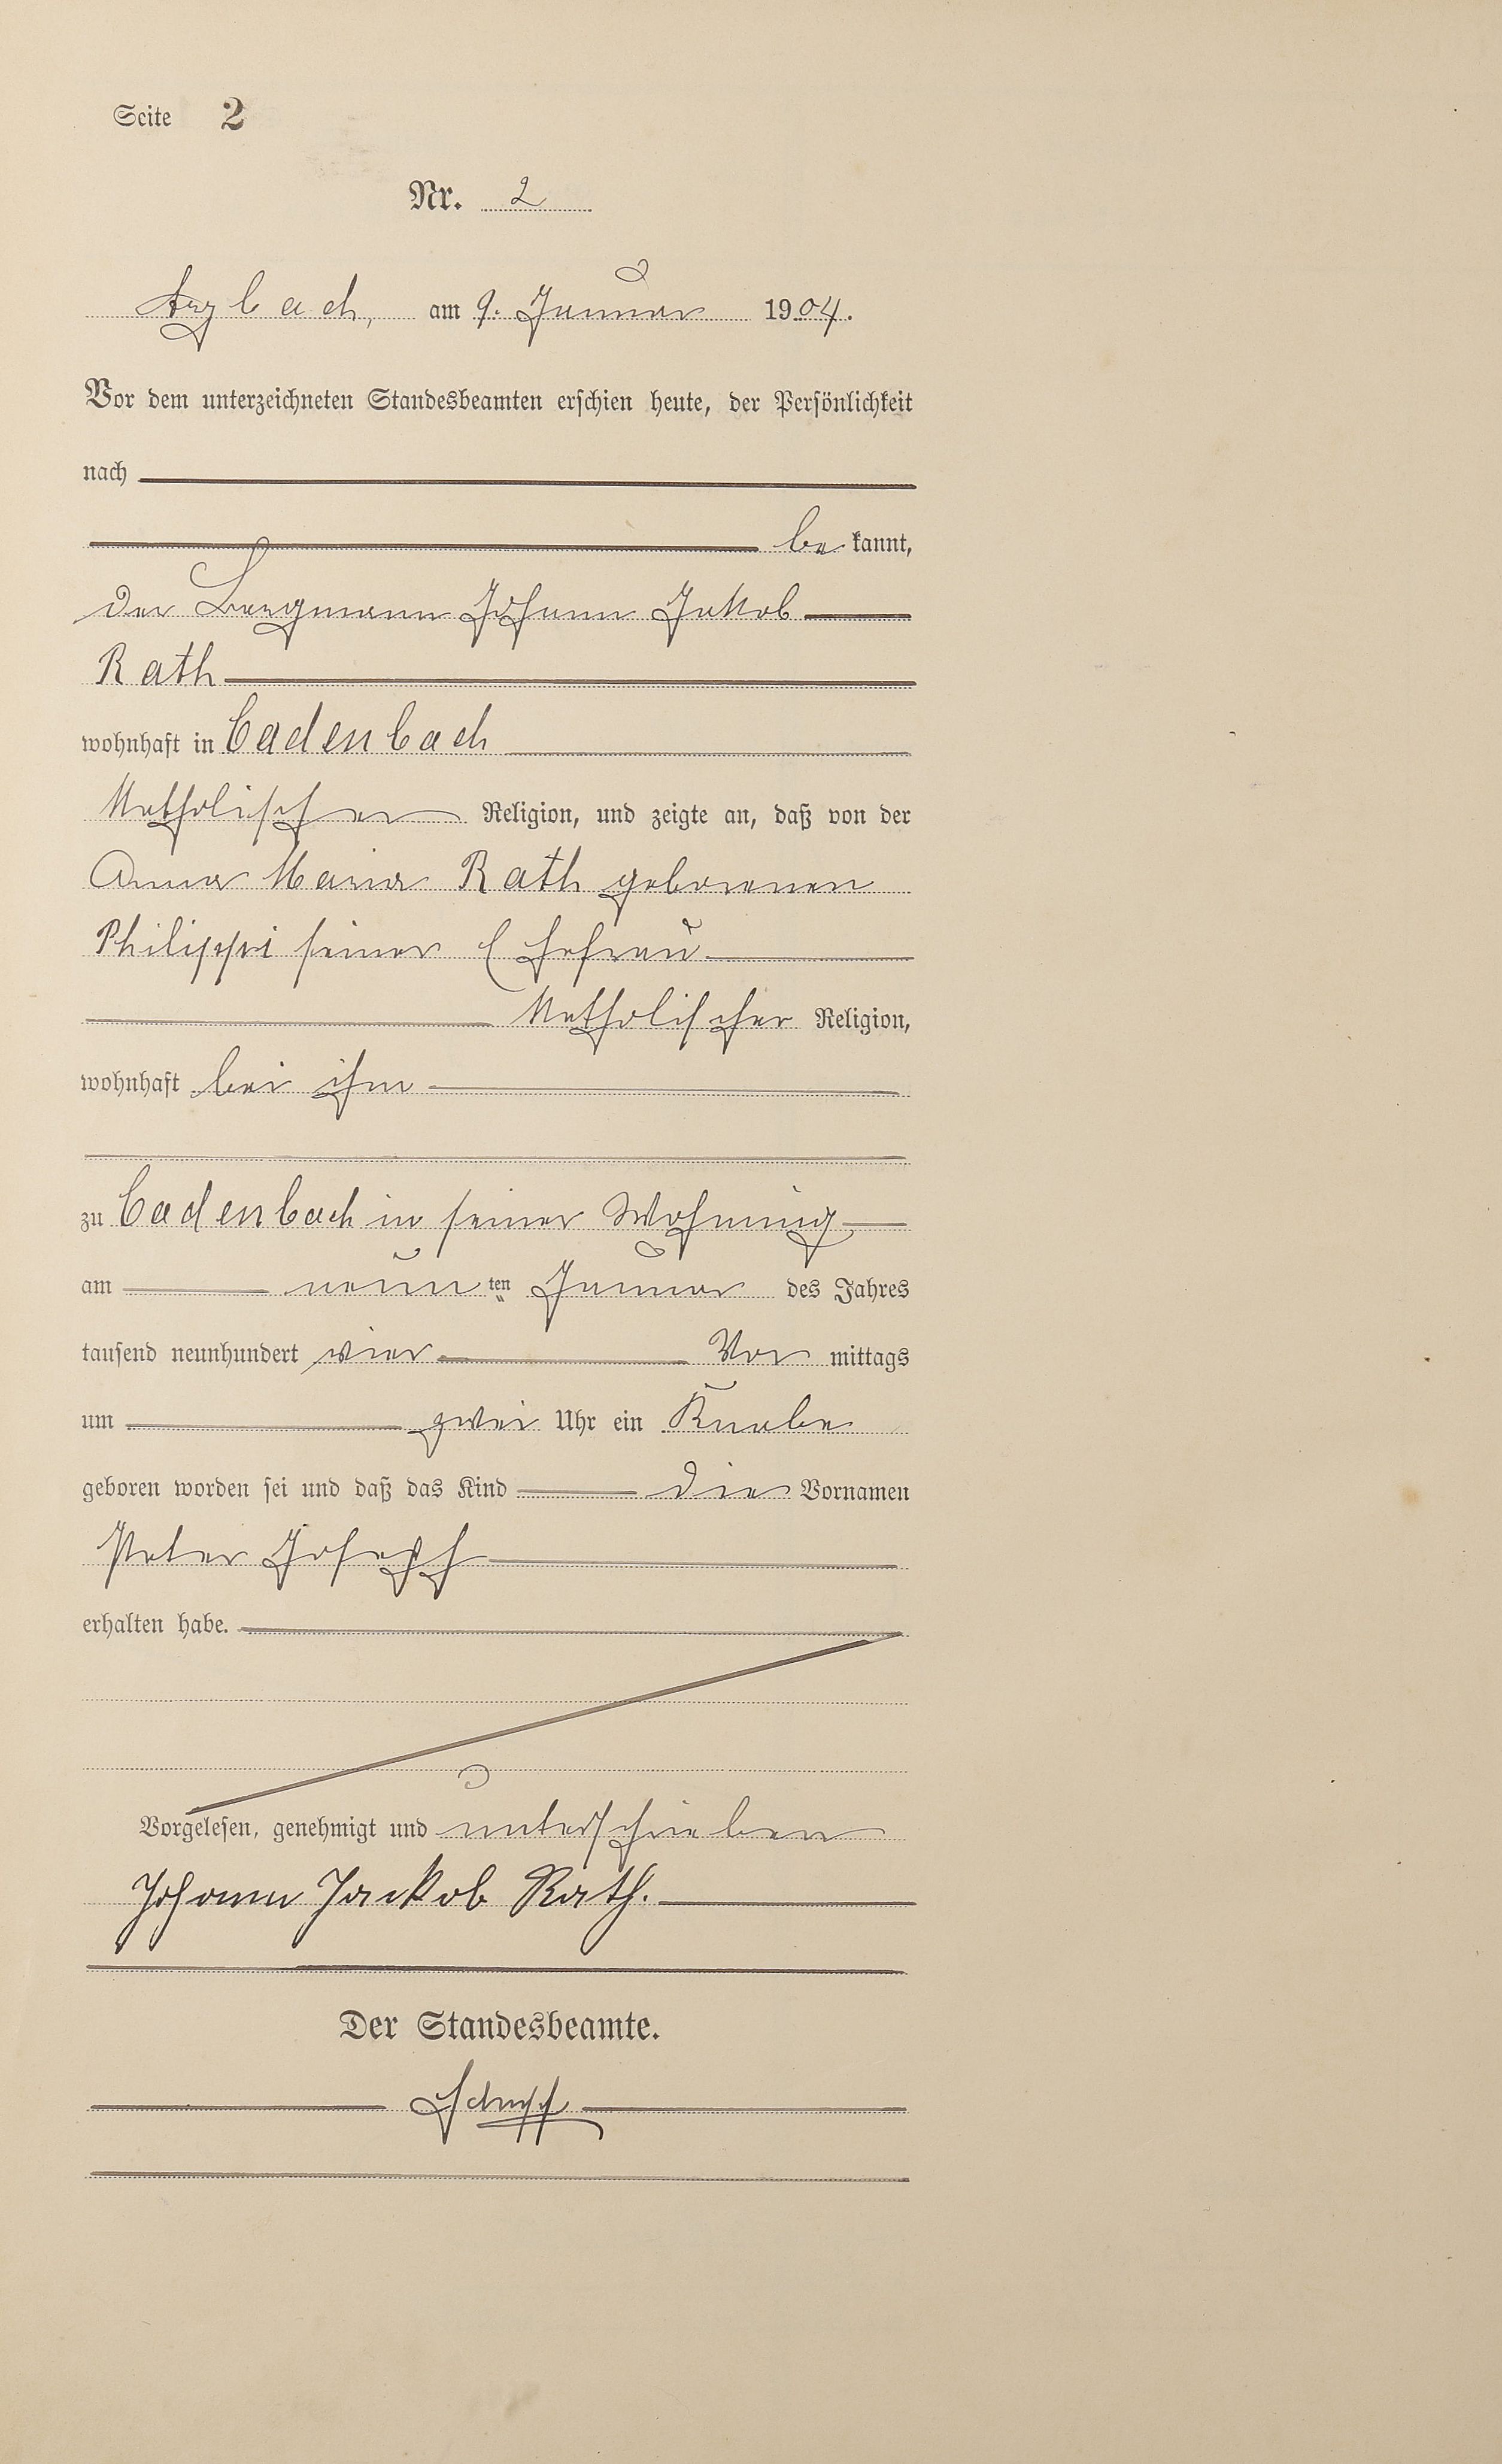 Seite 2
Nr. 2
Arzbach, am 9. Januar 1904.
Vor dem unterzeichneten Standesbeamten erschien heute, der Persönlichkeit
nach
be kannt,
der Bergmann Johann Jakob
Rath
wohnhaft in Cadenbach
Katholischer Religion, und zeigte an, daß von der
Anna Maria Rath geborenen
Philippi seiner Ehefrau
Katholischer Religion,
wohnhaft bei ihm
zu Cadenbach in seiner Wohnung
am neun ten Januar des Jahres
tausend neunhundert vier Vor mittags
um zwei Uhr ein Knabe
geboren worden sei und daß das Kind die Vornamen
Peter Joseph
erhalten habe.
Vorgelesen, genehmigt und unterschrieben
Johann Jackob Rath.
Der Standesbeamte.